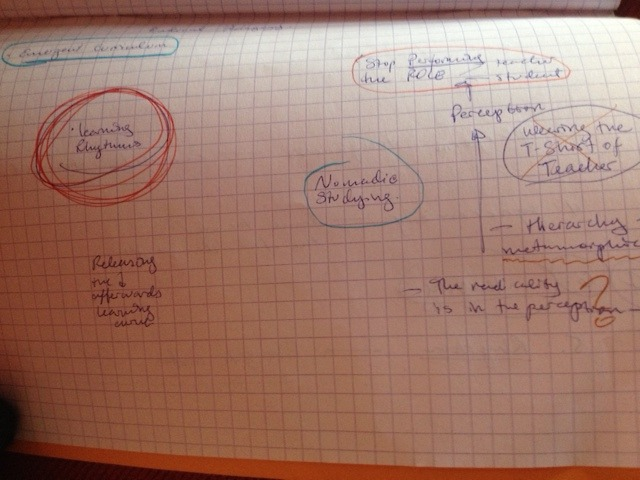 - Emergent Curriculum
Stop Performing teacher
the ROLE — student
Perception
Learning
Rhythms
wearing the
T-Shirt of
Teacher
Nomadic
Studying
— Hierarchy
metamorphic
Releasing
the
afterwards
learning
curve
— The radicality
is in the perception ?